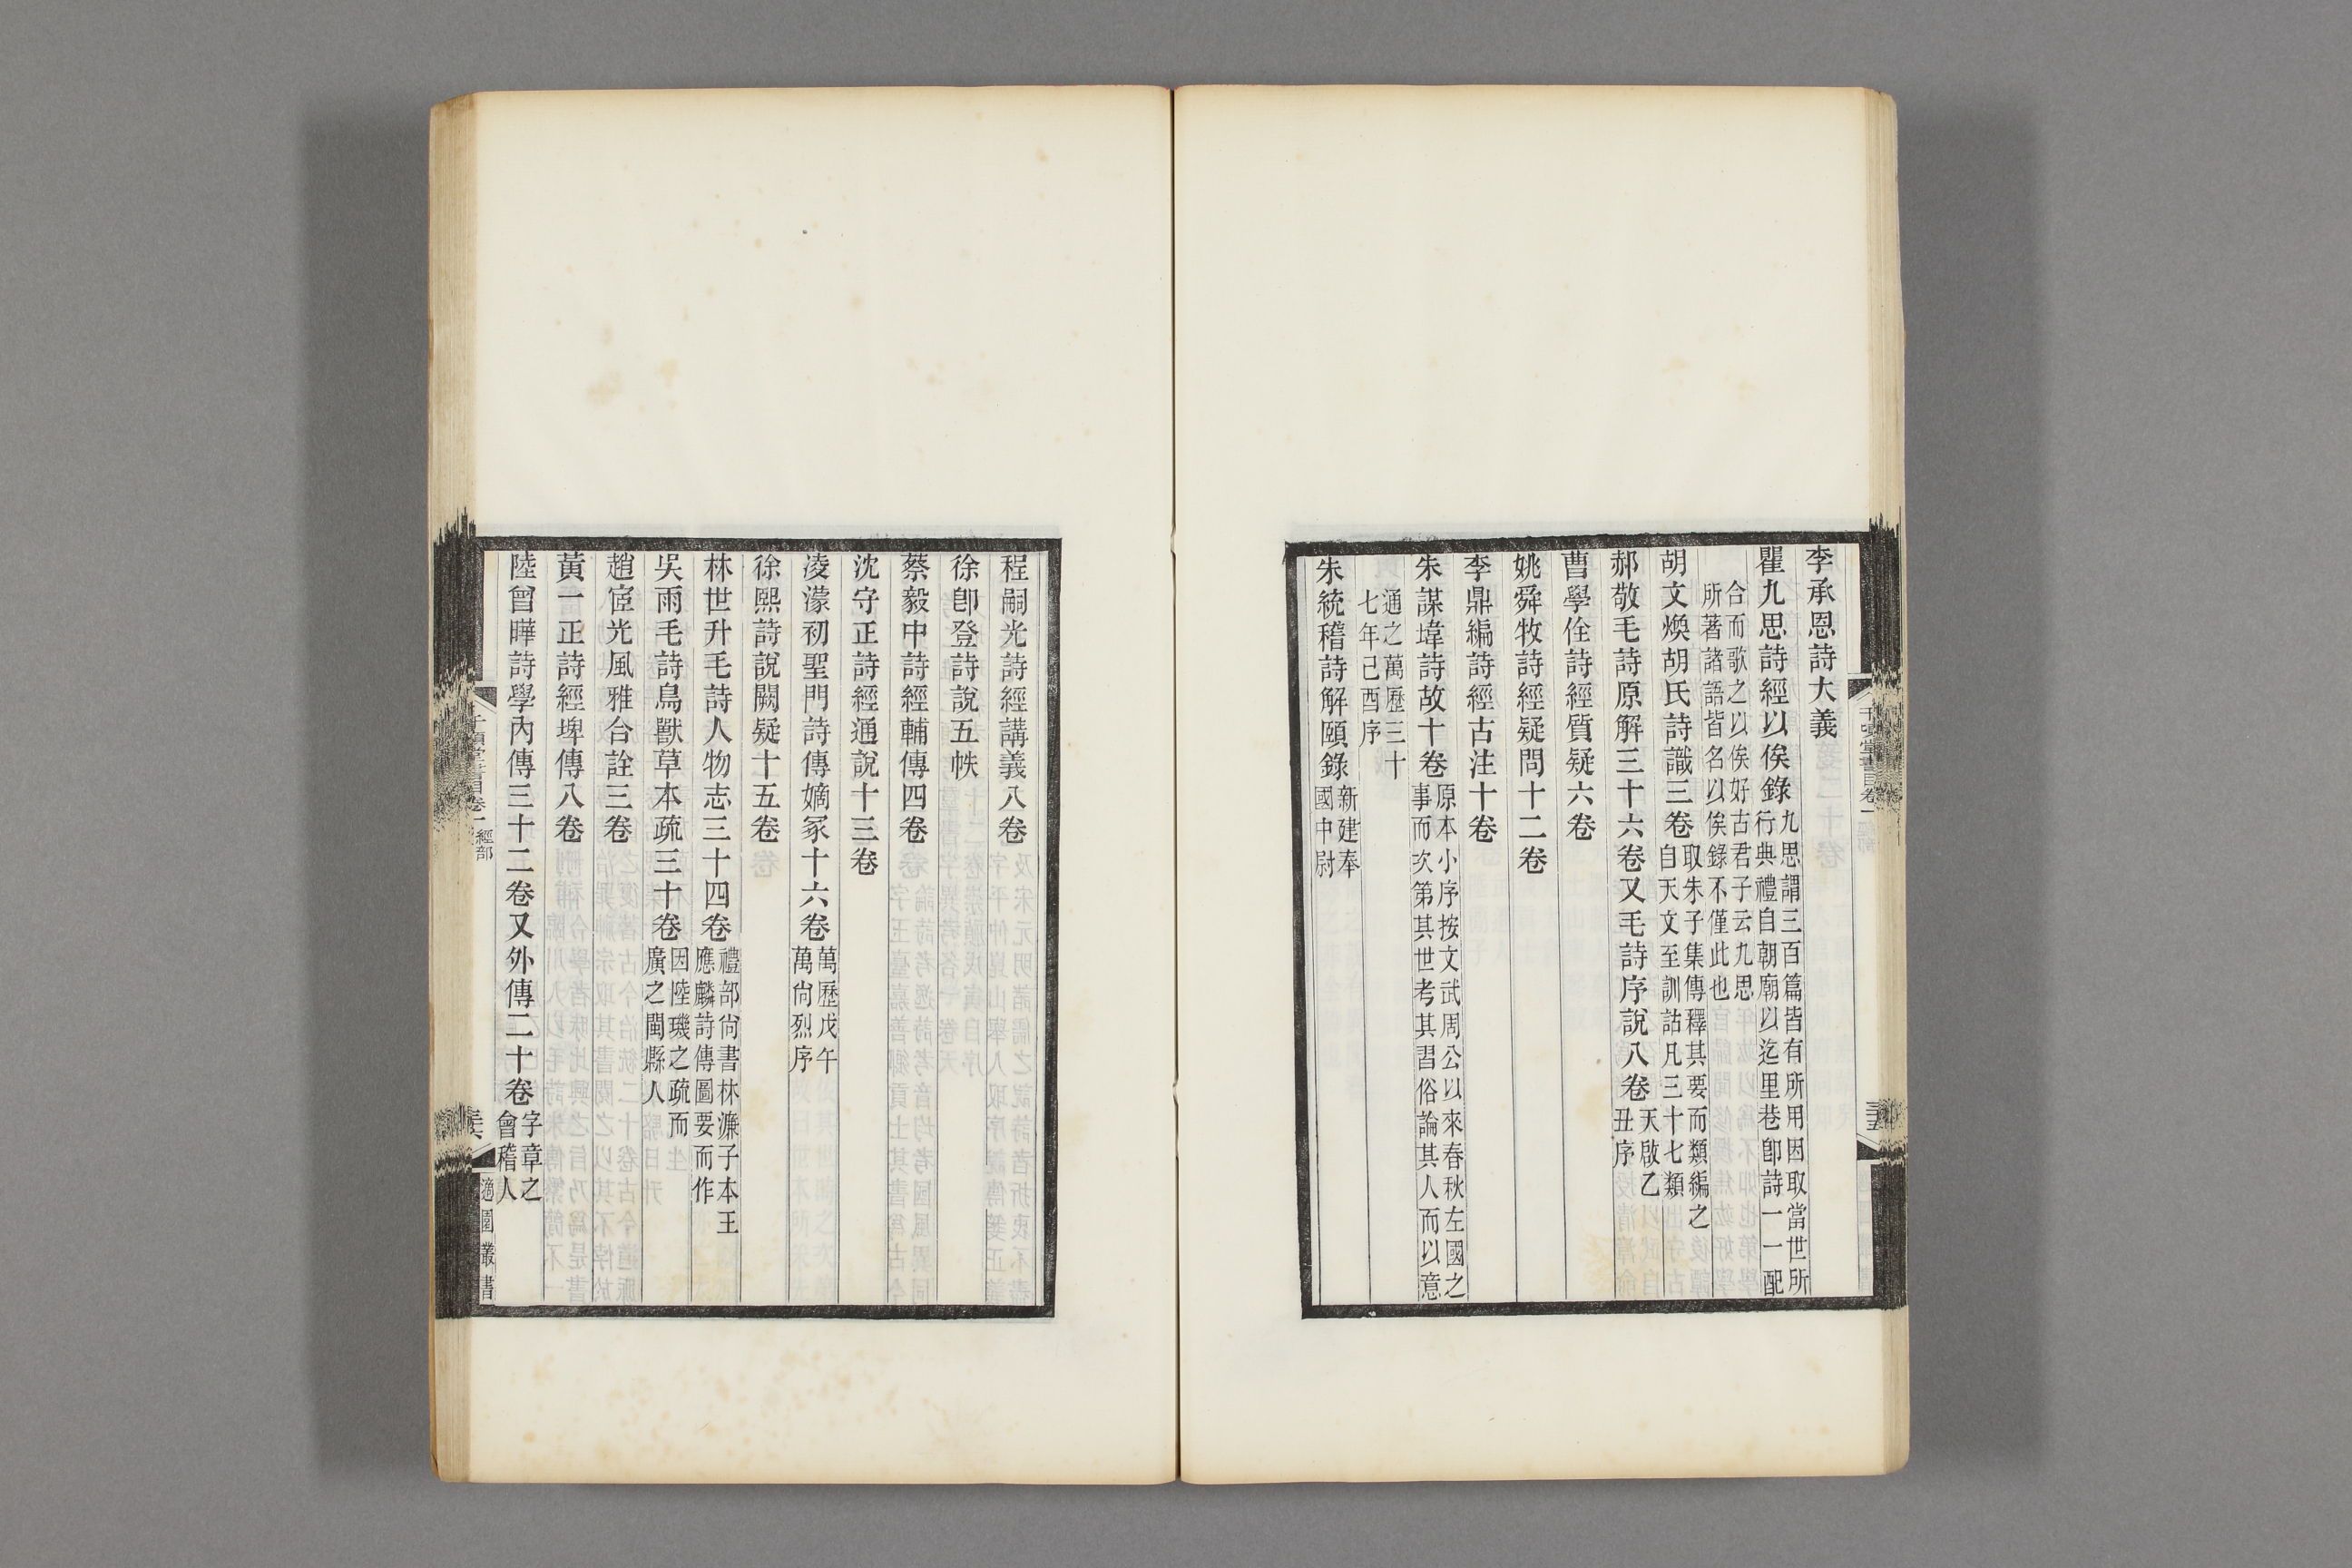 李承恩詩大義
瞿九思詩經以俟錄九思謂三百篇皆有所用因取當世所
行典禮自朝廟以迄里巷卽詩一一配
合而歌之以俟好古君子云九思
所著諸語皆名以俟錄不僅此也
胡文煥胡氏詩識三卷取朱子集傳釋其要而類編之
自天文至訓詁凡三十七類
郝敬毛詩原解三十六卷又毛詩序說八卷天啟乙
丑序
曹學佺詩經質疑六卷
姚舜牧詩經疑問十二卷
李鼎編詩經古注十卷
朱謀㙔詩故十卷原本小序按文武周公以來春秋左國之
事而次第其世考其習俗論其人而以意
通之萬歷三十
七年己酉序
朱統稽詩解頤錄新建奉
國中尉
程嗣光詩經講義八卷
徐卽登詩說五帙
蔡毅中詩經輔傳四卷
沈守正詩經通說十三卷
凌濛初聖門詩傳嫡冢十六卷萬歷戊午
萬尙烈序
徐熙詩說闕疑十五卷
林世升毛詩人物志三十四卷禮部尙書林濂子本王
應麟詩傳圖要而作
吳雨毛詩鳥獸草木疏三十卷因陸璣之疏而
廣之閩縣人
趙宧光風雅合詮三卷
黃一正詩經埤傳八卷
陸曾曄詩學內傳三十二卷又外傳二十卷字章之
會稽人
千頃堂書目卷一 經部
適園叢書